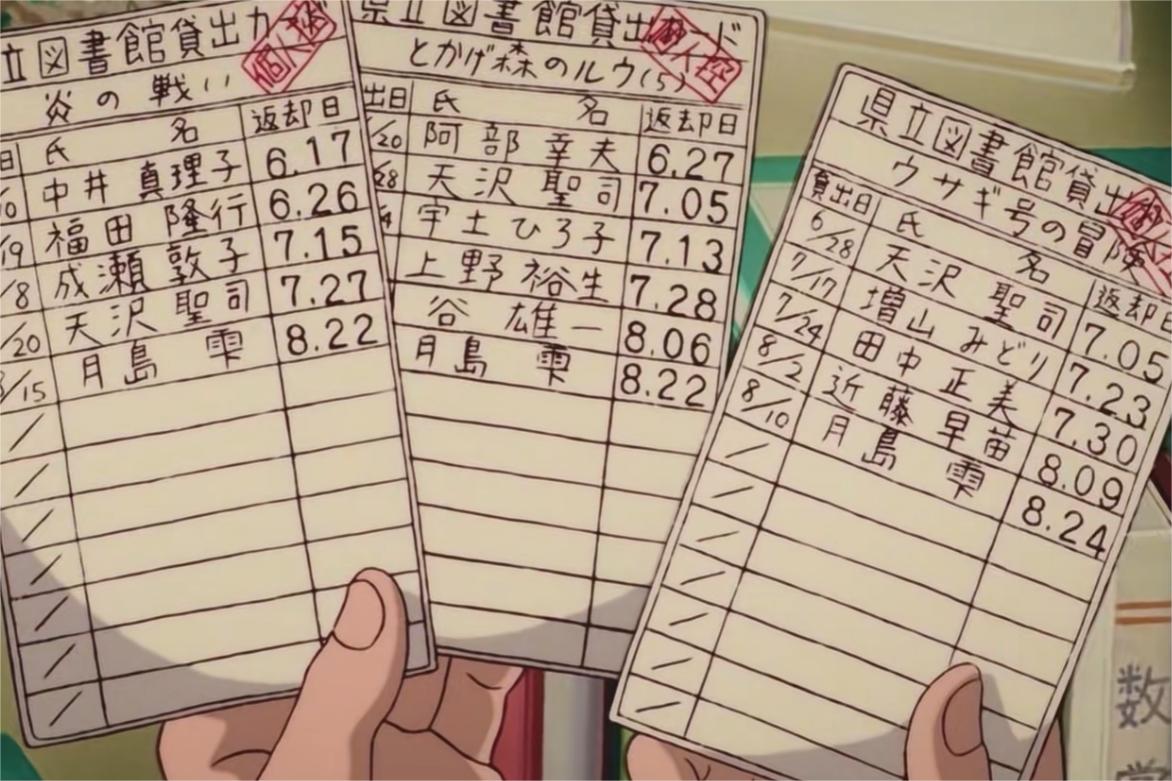 立図書館貸出カード
炎の戦い
日 氏 名 返却日
/10 中井 真理子 6.17
/19 福田 隆行 6.26
/8 成瀬 敦子 7.15
/20 天沢 聖司 7.27
8/15 月島 雫 8.22
県立図書館貸出カード
とかげ森のルウ(5)
出日 氏 名 返却日
/20 阿部 幸夫 6.27
/28 天沢 聖司 7.05
宇土 ひろ子 7.13
上野 裕生 7.28
谷 雄一 8.06
月島 雫 8.22
県立図書館貸出
ウサギ号の冒険
貸出日 氏 名 返却日
6/28 天沢 聖司 7.05
7/17 増山 みどり 7.23
7/24 田中 正美 7.30
8/2 近藤 早苗 8.09
8/10 月島 雫 8.24
数